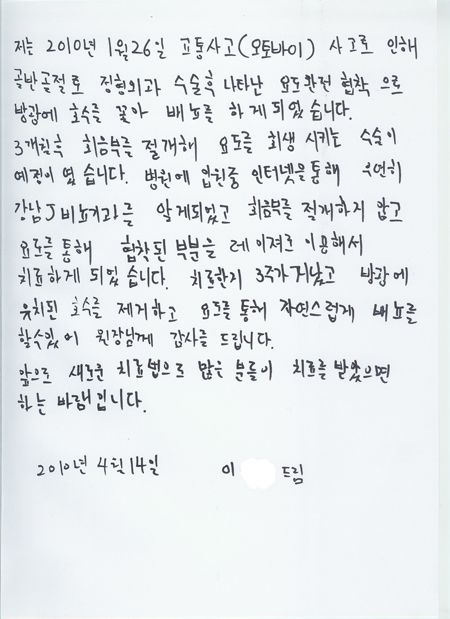 저는 2010년 1월 26일 교통사고(오토바이) 사고로 인해
골반골절로 정형외과 수술후 나타난 요도완전 협착 으로
방광에 호수를 꽂아 배뇨를 하게되었습니다.
3개월후 회음부를 절개해 요도를 회생 시키는 수술이
예정이였습니다. 병원에 입원중 인터넷을통해 우연히
강남J비뇨기과를 알게되었고 회음부를 절개하지 않고
요도를 통해 협착된 부분을 레이져로 이용해서
치료하게 되었습니다. 치료한지 3주가지났고 방광에
유치된 호수를 제거하고 요도를 통해 자연스럽게 배뇨를
할수있어 원장님께 감사를 드립니다.
앞으로 새로운 치료법으로 많은 분들이 치료를 받았으면
하는 바램입니다.
2010년 4월 14일 이 드림